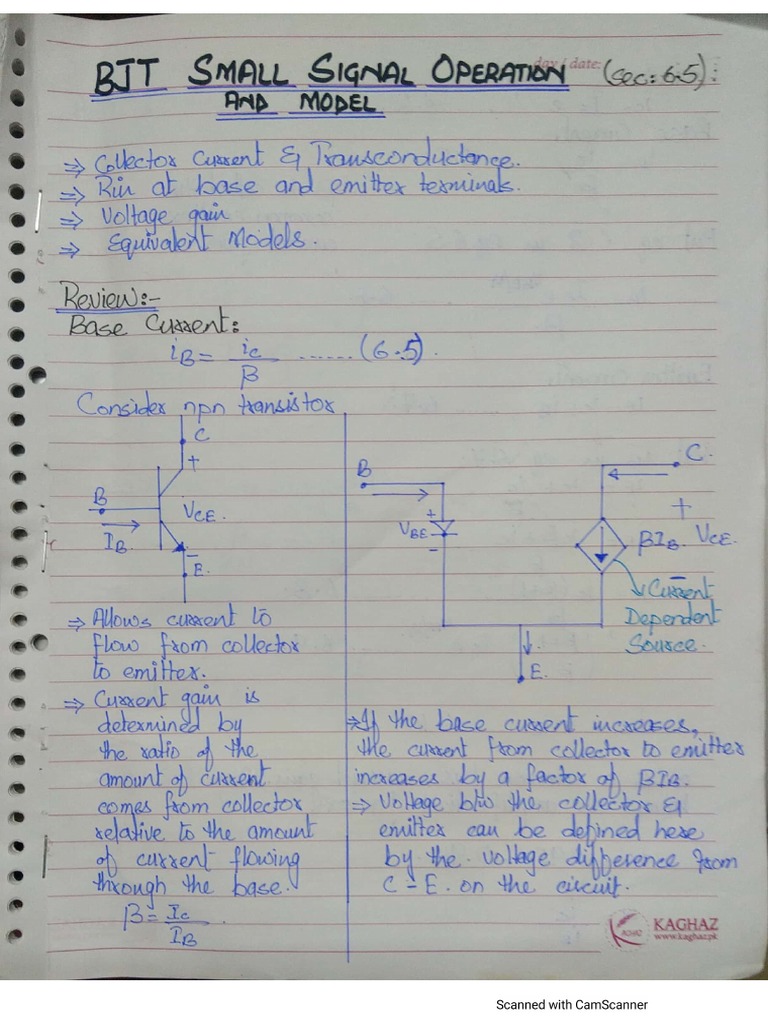 day / date:
BJT SMALL SIGNAL OPERATION (sec: 6.5):
AND MODEL
⇒ Collector Current & Transconductance.
⇒ Rin at base and emitter terminals.
⇒ Voltage gain
⇒ Equivalent Models.
Review:-
Base Current:
iB = ic / β ...... (6.5).
Consider npn transistor
C
+
B
VCE.
IB
-
E.
⇒ Allows current to
flow from collector
to emitter.
⇒ Current gain is
determined by
the ratio of the
amount of current
comes from collector
relative to the amount
of current flowing
through the base.
β = Ic / IB .
B
C.
+
VBE
-
+
βIB
VCE.
-
Current
Dependent
Source.
E.
⇒ If the base current increases,
the current from collector to emitter
increases by a factor of βIB.
⇒ Voltage b/w the collector &
emitter can be defined here
by the voltage difference from
C - E. on the circuit.
KAGHAZ
www.kaghaz.pk
Scanned with CamScanner